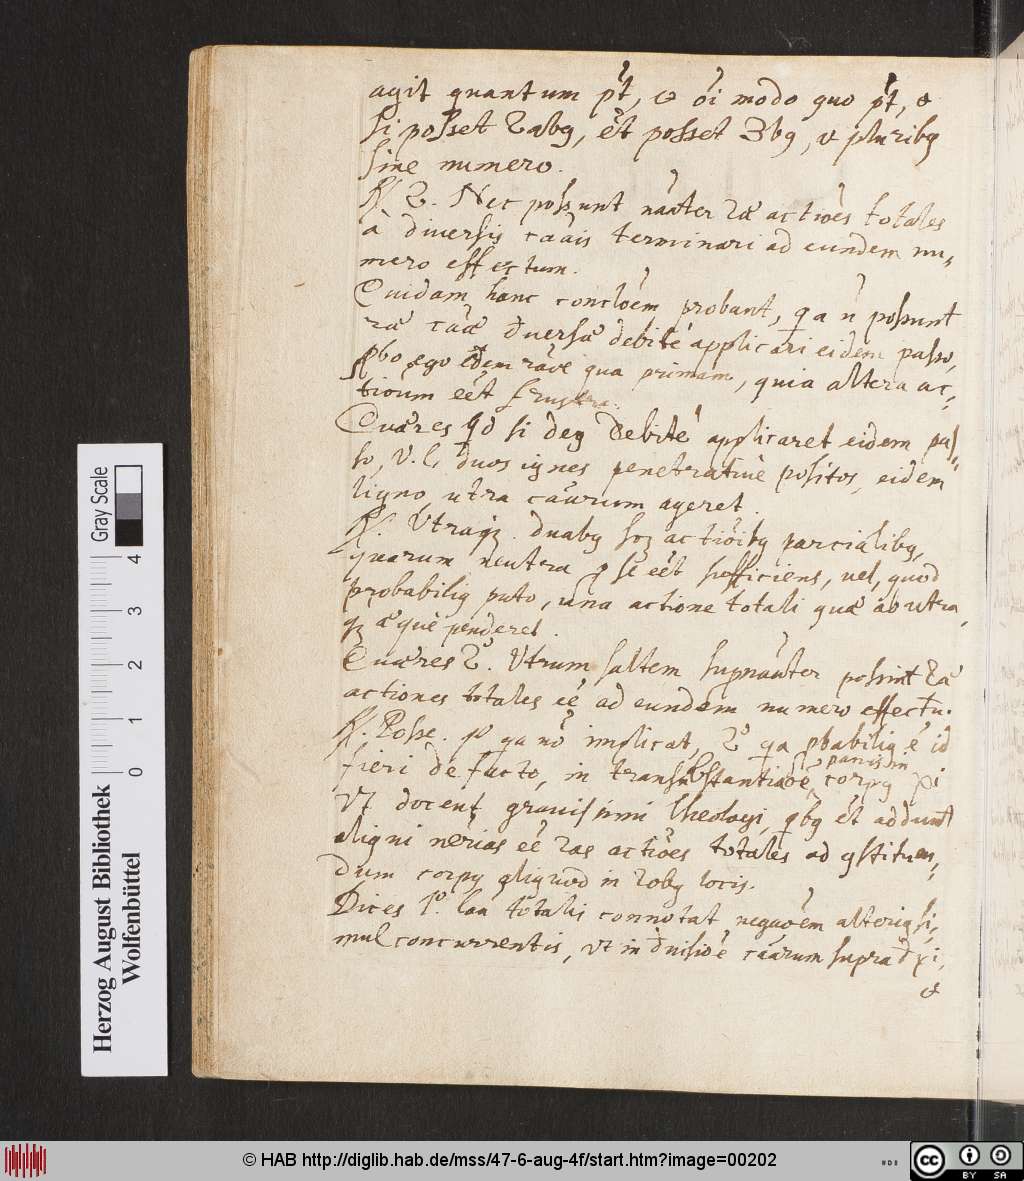 agit quantum pt, & oi modo quo pt, &
si posset 2abq, et posset 3bq, & pluribq
sine numero.
R. 2. Nec possunt naater 2æ actiões totales
à diversis caãis terminari ad eundem nu,,
mero effectum.
Quidam hanc concloem probant, qa ñ possunt
caæ dversæ debite applicari eidem passo,
ego quia altera ac,,
tionum eét frustra.
Quæres qd si deq debite applicaret eidem pas,,
so, v. l. duos ignes penetrative positos, eidem
ligno utra caarum ageret.
R. Utraqz duabq actioibq parcialibq,
quarum neutra p se eét sufficiens, vel, quod
probabiliq puto, una actione totali quæ ab utra,,
qz æquè penderet.
Quæres 2. Utrum saltem supnaater possint 2æ
actiones totales eé ad eundem numero effectu.
R. Posse. po qa nõ implicat, 2o qa pbabiliq é id
fieri de facto, in transubstantiaõe panis in corpq Xi
Vt docent gravissimi theologi, qbq ét addunt
aligni nérias eé 2as actiões totales ad qstituen,,
dum corpq aliquod in 2obq locis.
Dices 1o. caa totalis connotat negaõem alteriq si,,
mul concurrentis, vt in dvisioe caarum supra dxi,
&
Gray Scale
4
3
2
1
0
Herzog August Bibliothek
Wolfenbüttel
© HAB http://diglib.hab.de/mss/47-6-aug-4f/start.htm?image=00202
cc BY SA